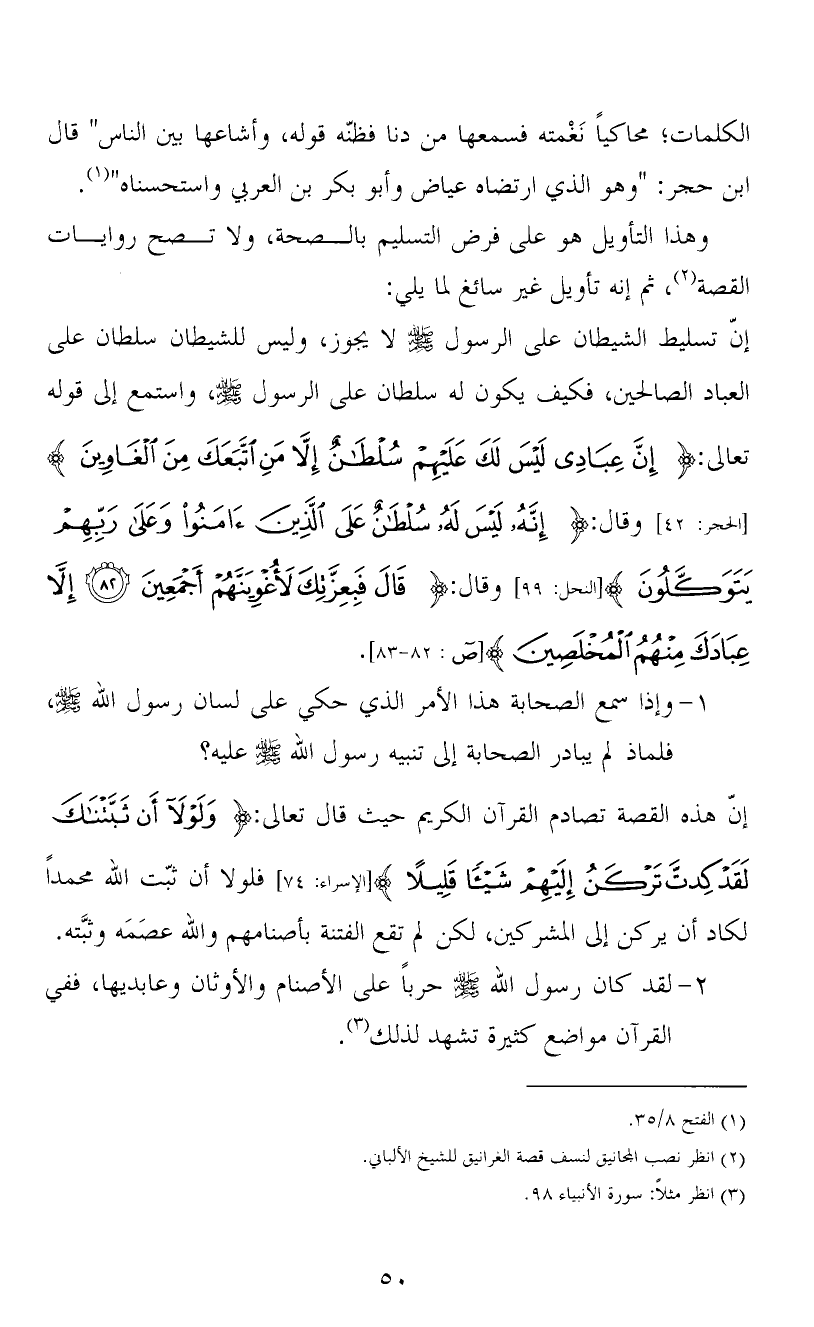 الكلمات؛ محاكياً نَغْمته فسمعها من دنا فظنّه قوله، وأشاعها بين الناس" قال
ابن حجر: "وهو الذي ارتضاه عياض وأبو بكر بن العربي واستحسناه"(١).
وهذا التأويل هو على فرض التسليم بالـــصحة، ولا تـــصح روايـــات
القصة(٢)، ثم إنه تأويل غير سائغ لما يلي:
إنّ تسليط الشيطان على الرسول ﷺ لا يجوز، وليس للشيطان سلطان على
العباد الصالحين، فكيف يكون له سلطان على الرسول ﷺ، واستمع إلى قوله
تعالى:﴿ إِنَّ عِبَادِى لَيْسَ لَكَ عَلَيْهِمْ سُلْطَٰنٌ إِلَّا مَنِ ٱتَّبَعَكَ مِنَ ٱلْغَاوِينَ ﴾
[الحجر: ٤٢] وقال:﴿ إِنَّهُۥ لَيْسَ لَهُۥ سُلْطَٰنٌ عَلَى ٱلَّذِينَ ءَامَنُوا۟ وَعَلَىٰ رَبِّهِمْ
يَتَوَكَّلُونَ ﴾[النحل: ٩٩] وقال:﴿ قَالَ فَبِعِزَّتِكَ لَأُغْوِيَنَّهُمْ أَجْمَعِينَ ٨٢ إِلَّا
عِبَادَكَ مِنْهُمُ ٱلْمُخْلَصِينَ ﴾[صٓ : ٨٢-٨٣].
١- وإذا سمع الصحابة هذا الأمر الذي حكي على لسان رسول الله ﷺ،
فلماذ لم يبادر الصحابة إلى تنبيه رسول الله ﷺ عليه؟
إنّ هذه القصة تصادم القرآن الكريم حيث قال تعالى:﴿ وَلَوْلَآ أَن ثَبَّتْنَٰكَ
لَقَدْ كِدتَّ تَرْكَنُ إِلَيْهِمْ شَيْـًٔا قَلِيلًا ﴾[الإسراء: ٧٤] فلولا أن ثبّت الله محمداً
لكاد أن يركن إلى المشركين، لكن لم تقع الفتنة بأصنامهم والله عصَمَه وثبَّته.
٢- لقد كان رسول الله ﷺ حرباً على الأصنام والأوثان وعابديها، ففي
القرآن مواضع كثيرة تشهد لذلك(٣).
(١) الفتح ٣٥/٨.
(٢) انظر نصب المجانيق لنسف قصة الغرانيق للشيخ الألباني.
(٣) انظر مثلاً: سورة الأنبياء ٩٨.
٥٠